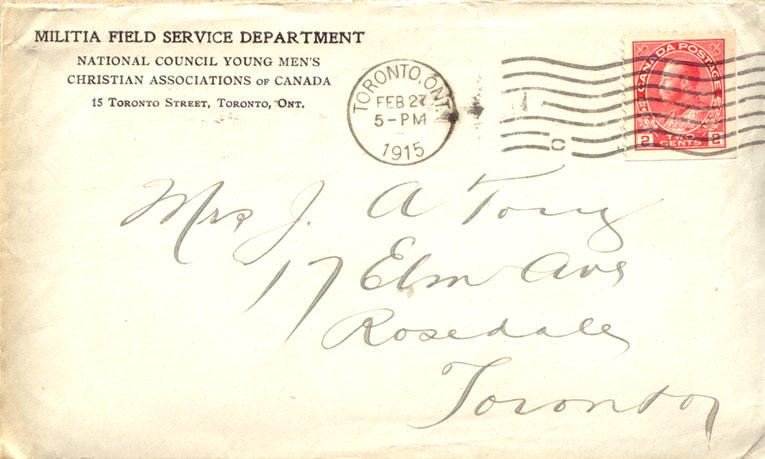 MILITIA FIELD SERVICE DEPARTMENT
NATIONAL COUNCIL YOUNG MEN'S
CHRISTIAN ASSOCIATIONS OF CANADA
15 TORONTO STREET, TORONTO, ONT.
TORONTO, ONT.
FEB 27
5-PM
1915
C
CANADA POSTAGE
2 TWO CENTS 2
Mrs J. A Tory
17 Elm Ave
Rosedale
Toronto